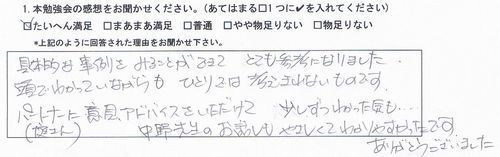 1. 本勉強会の感想をお聞かせください。(あてはまる□1つに✔を入れてください)
☑たいへん満足 □まあまあ満足 □普通 □やや物足りない □物足りない
*上記のように回答された理由をお聞かせ下さい。
具体的な事例をみることができて とても参考になりました。
頭でわかっていながらも ひとりでは 考えきれないものです。
パートナーに意見、アドバイスをいただけて 少しずつわかった気も‥‥
中野先生のお話しも やさしくてわかりやすかったです。
ありがとうございました